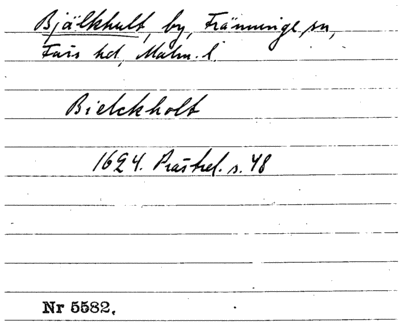 Bjälkhult, by, Fränninge sn,
Färs hd, Malm. l.
Bielckholt
1624. Prästrel. s. 48
Nr 5582.